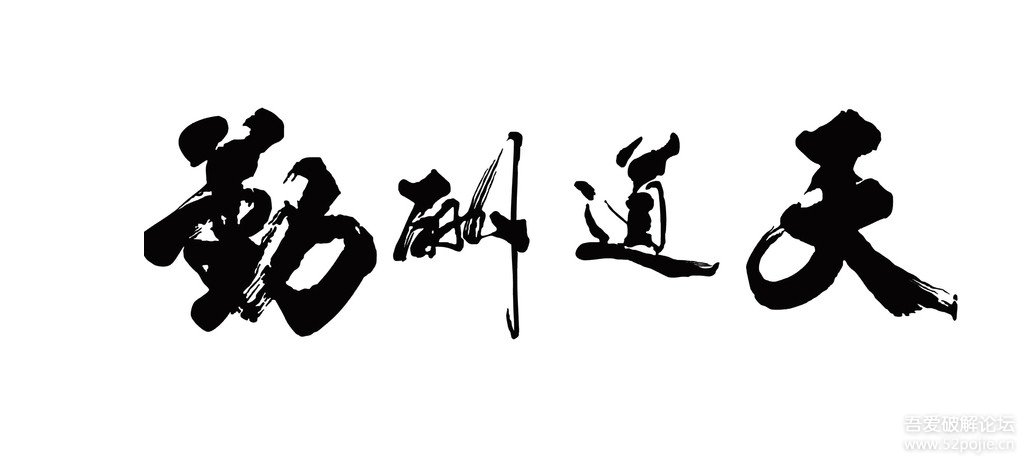 天道酬勤
吾爱破解论坛
www.52pojie.cn